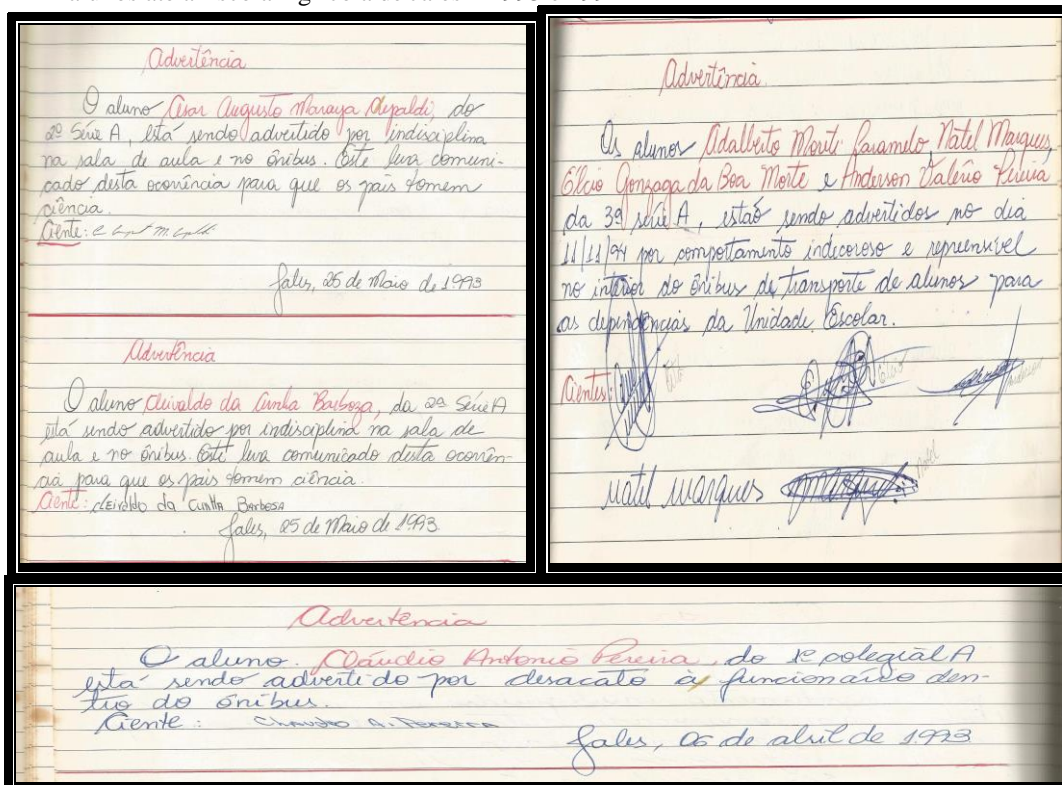 Advertência
O aluno Cesar Augusto Maraya , do
2ª Série A, está sendo advertido por indisciplina
na sala de aula e no ônibus. Este leva comuni-
cado desta ocorrência para que os pais tomem
ciência.
Ciente:
Jales, 25 de Maio de 1993
Advertência
O aluno Cleivaldo da Cunha Barboza, da 2ª Série A
está sendo advertido por indisciplina na sala de
aula e no ônibus. Este leva comunicado desta ocorrên-
cia para que os pais tomem ciência.
Ciente: Cleivaldo da Cunha Barbosa
Jales, 25 de Maio de 1993
Advertência
Os alunos Adalberto Natel Marques,
Élcio Gonzaga da Boa Morte e Anderson Valério Pereira
da 3ª série A, estaõ sendo advertidos no dia
11/11/94 por comportamento indecoroso e repreensível
no interior do ônibus de transporte de alunos para
as dependências da Unidade Escolar.
Cientes:
Natel Marques
Advertencia
O aluno. Cláudio Antonio Pereira, do 1º colegial A
está sendo advertido por desacato à funcionário den-
tro do ônibus.
Ciente: Claudio A. Pereira
Jales, 06 de abril de 1993